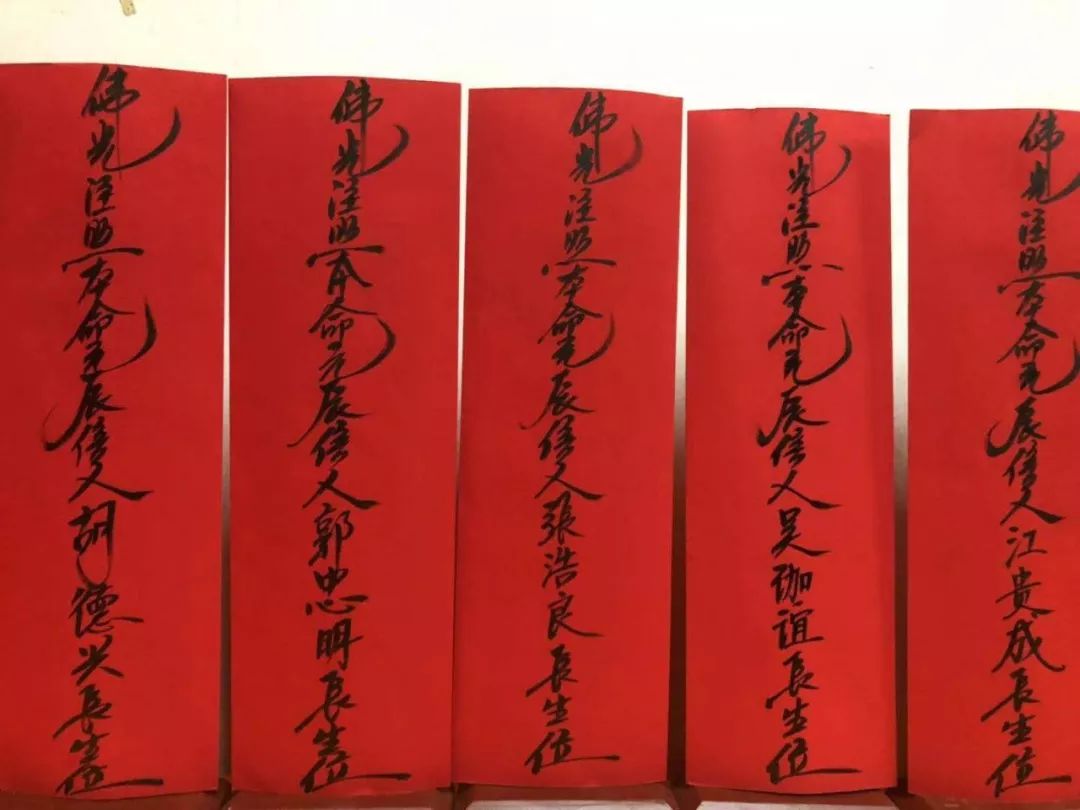 佛光注照本命元辰信人胡德兴長生位
佛光注照本命元辰信人郭忠明長生位
佛光注照本命元辰信人張浩良長生位
佛光注照本命元辰信人吴伽谊長生位
佛光注照本命元辰信人江贵成長生位